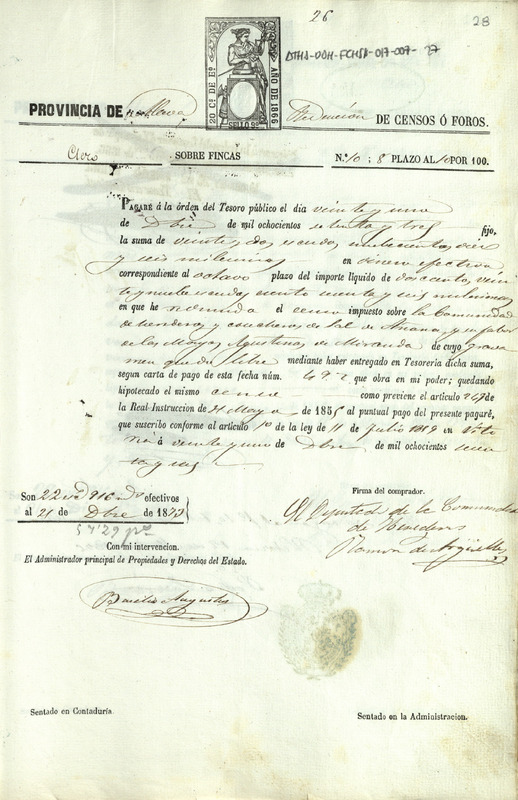 26
28
DTHA-DAH-FCHSA-017-007-27
20 Cs. DE Eo. AÑO DE 1866
SELLO 9º
PROVINCIA DE Alava Redencion DE CENSOS Ó FOROS.
Clero SOBRE FINCAS N.º 10 ; 8º PLAZO AL 10 POR 100.
PAGARÉ á la órden del Tesoro público el dia veinte y uno
de Dbre de mil ochocientos setenta y tres fijo,
la suma de veinte y dos escudos novecientos diez
y seis milesimas en dinero efectivo
correspondiente al octavo plazo del importe líquido de doscientos vein
te y nueve escudos ciento sesenta y seis milesimas
en que he redimido el censo impuesto sobre la Comunidad
de herederos y caballeros de sal de Anana, y en fabor
de las Monjas Agustinas de Miranda de cuyo grava
men queda libre mediante haber entregado en Tesorería dicha suma,
segun carta de pago de esta fecha núm. 492 que obra en mi poder; quedando
hipotecado el mismo censo como previene el artículo 249 de
la Real Instruccion de 31 Mayo de 1855 al puntual pago del presente pagaré,
que suscribo conforme al artículo 1º de la ley de 11 de Julio 1859 en Vito
ria á veinte y uno de Dbre de mil ochocientos sesen
ta y seis
Son 22 esc 916 ms efectivos
al 21 de Dbre de 1873
57'29 ps
Firma del comprador.
El Diputado de la Comunidad
de Herederos
Ramon de
Con mi intervencion.
El Administrador principal de Propiedades y Derechos del Estado.
Basilio Augustin
Sentado en Contaduría.
Sentado en la Administracion.